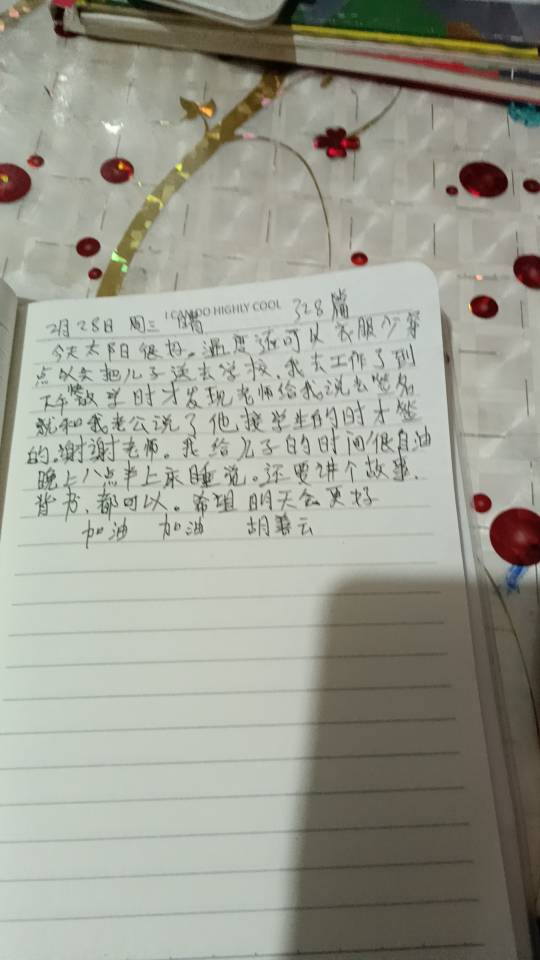 I CAN DO HIGHLY COOL
2月28日 周三 晴 328篇
今天太阳很好。温度还可以衣服少穿
点以后把儿子送去学校,我去工作了到
下午数学时才发现老师给我说去签名
就和我老公说了他,接学生的时才签
的,谢谢老师。我给儿子的时间很自由
晚上八点半上床睡觉。还要讲个故事、
背书,都可以。希望明天会更好
加油 加油 胡云